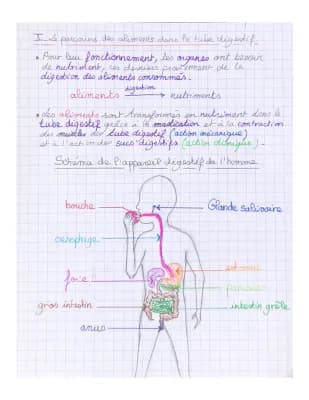 I - Le parcours des aliments dans le tube digestif.
• Pour leur fonctionnement, les organes ont besoin
de nutriment, ces derniers proviennent de la
digestion des aliments consommés.
digestion
aliments → nutriments
• Les aliments sont transformés en nutriment dans le
tube digestif grâce à la mastication et à la contraction
des muscles du tube digestif (action mécanique)
et à l'action des sucs digestifs (action chimique).
Schéma de l'appareil digestif de l'homme
bouche
Glande salivaire
œsophage
foie
estomac
pancréas
gros intestin
intestin grêle
anus